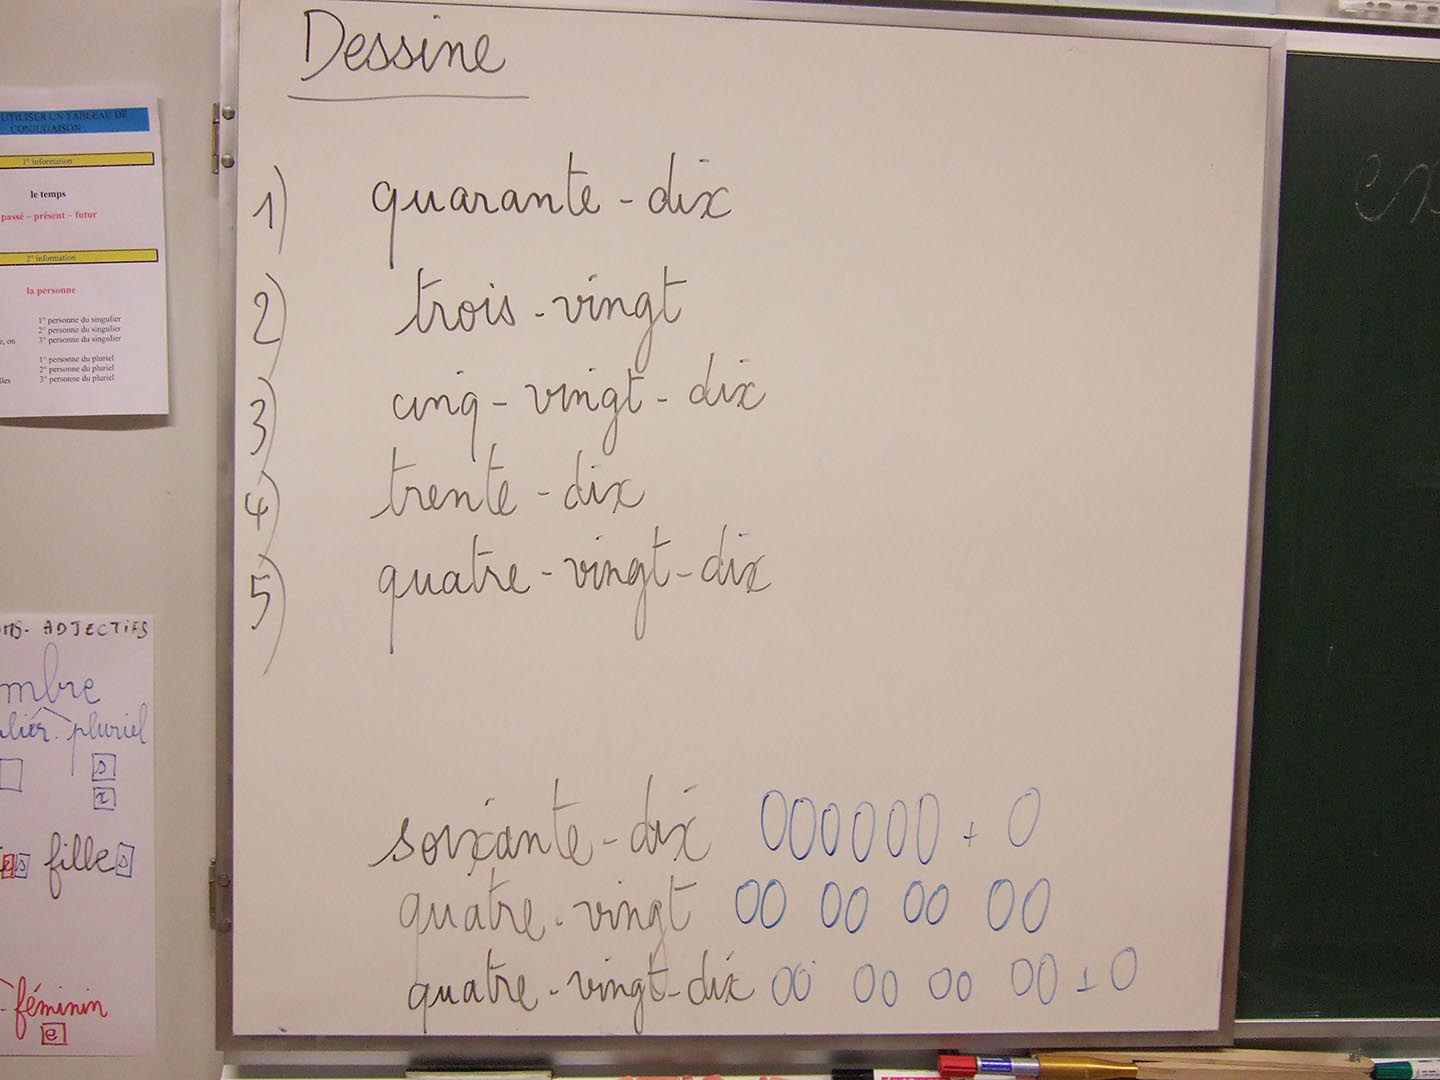 Dessine
1) quarante-dix
2) trois-vingt
3) cinq-vingt-dix
4) trente-dix
5) quatre-vingt-dix
soixante-dix 000000 + 0
quatre-vingt 00 00 00 00
quatre-vingt-dix 00 00 00 00 + 0
UTILISER UN TABLEAU DE
CONJUGAISON
1° information
le temps
passé – présent – futur
2° information
la personne
1° personne du singulier
2° personne du singulier
on 3° personne du singulier
1° personne du pluriel
2° personne du pluriel
3° personne du pluriel
ADJECTIFS
pluriel
s
x
s filles
féminin
e